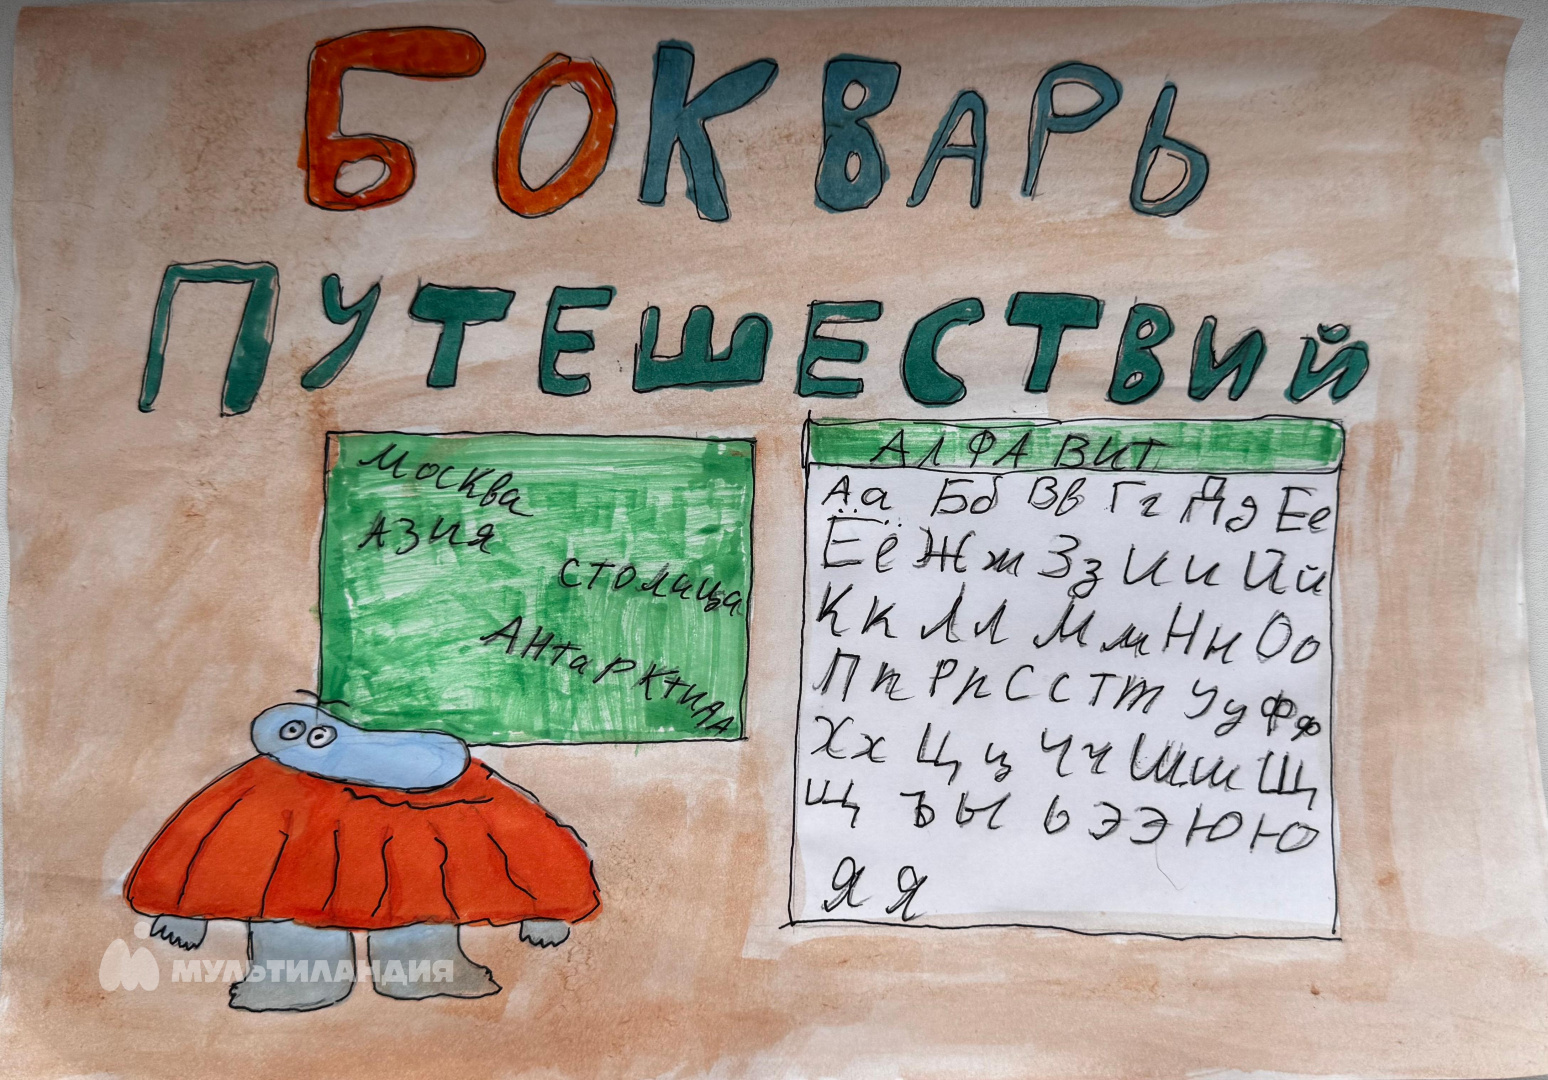 БОКВАРЬ
ПУТЕШЕСТВИЙ
Москва
Азия
столица
Антарктида
АЛФАВИТ
Аа Бб Вв Гг Дд Ее
Ёё Жж Зз Ии Йй
Кк Лл Мм Нн Оо
Пп Рр Сс Тт Уу Фф
Хх Цц Чч Шш Щ
щ ъ ы ь Э Э Ю Ю
Я Я
МУЛЬТИЛАНДИЯ